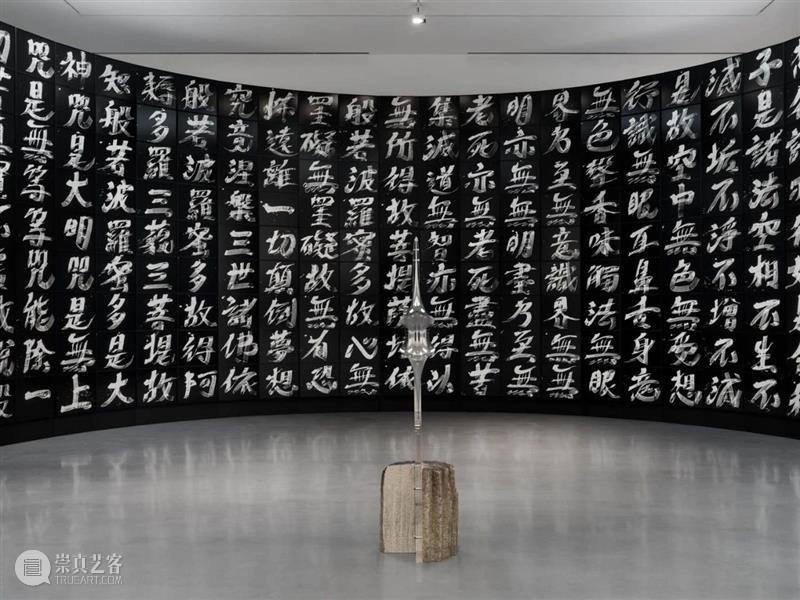 子是諸法空相不生不
滅不垢不淨不增不減
是故空中無色無受想
行識無眼耳鼻舌身意
無色聲香味觸法無眼
界乃至無意識界無無
明亦無無明盡乃至無
老死亦無老死盡無苦
集滅道無智亦無得以
無所得故菩提薩埵依
般若波羅蜜多故心無
罣礙無罣礙故無有恐
怖遠離一切顛倒夢想
究竟涅槃三世諸佛依
般若波羅蜜多故得阿
耨多羅三藐三菩提故
知般若波羅蜜多是大
神咒是大明咒是無上
咒是無等等咒能除一
崇真艺客
WWW.TRUEART.COM